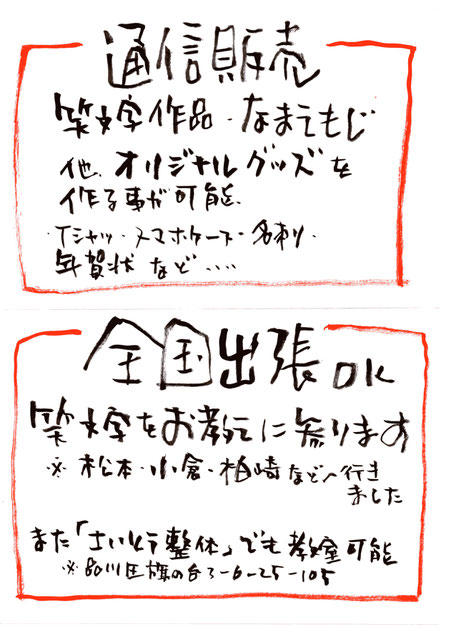 通信販売
笑文字作品・なまえもじ
他、オリジナルグッズを
作る事が可能、
・Tシャツ・スマホケース・名刺・
年賀状など・・・・
全国出張OK
笑文字をお教えに参ります
※松本・小倉・柏崎などへ行き
ました
また「さいとう整体」でも教室可能
※品川区旗の台3-6-25-105